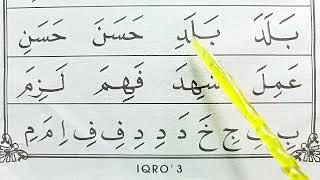 بَلَدَ بَلَدِ حَسَنَ حَسَنِ
عَمِلَ شَهِدَ فَهِمَ لَزِمَ
بِ بِ جِ خَ دَ دِ دِ فِ فِ اِ مَ مِ
IQRO' 3